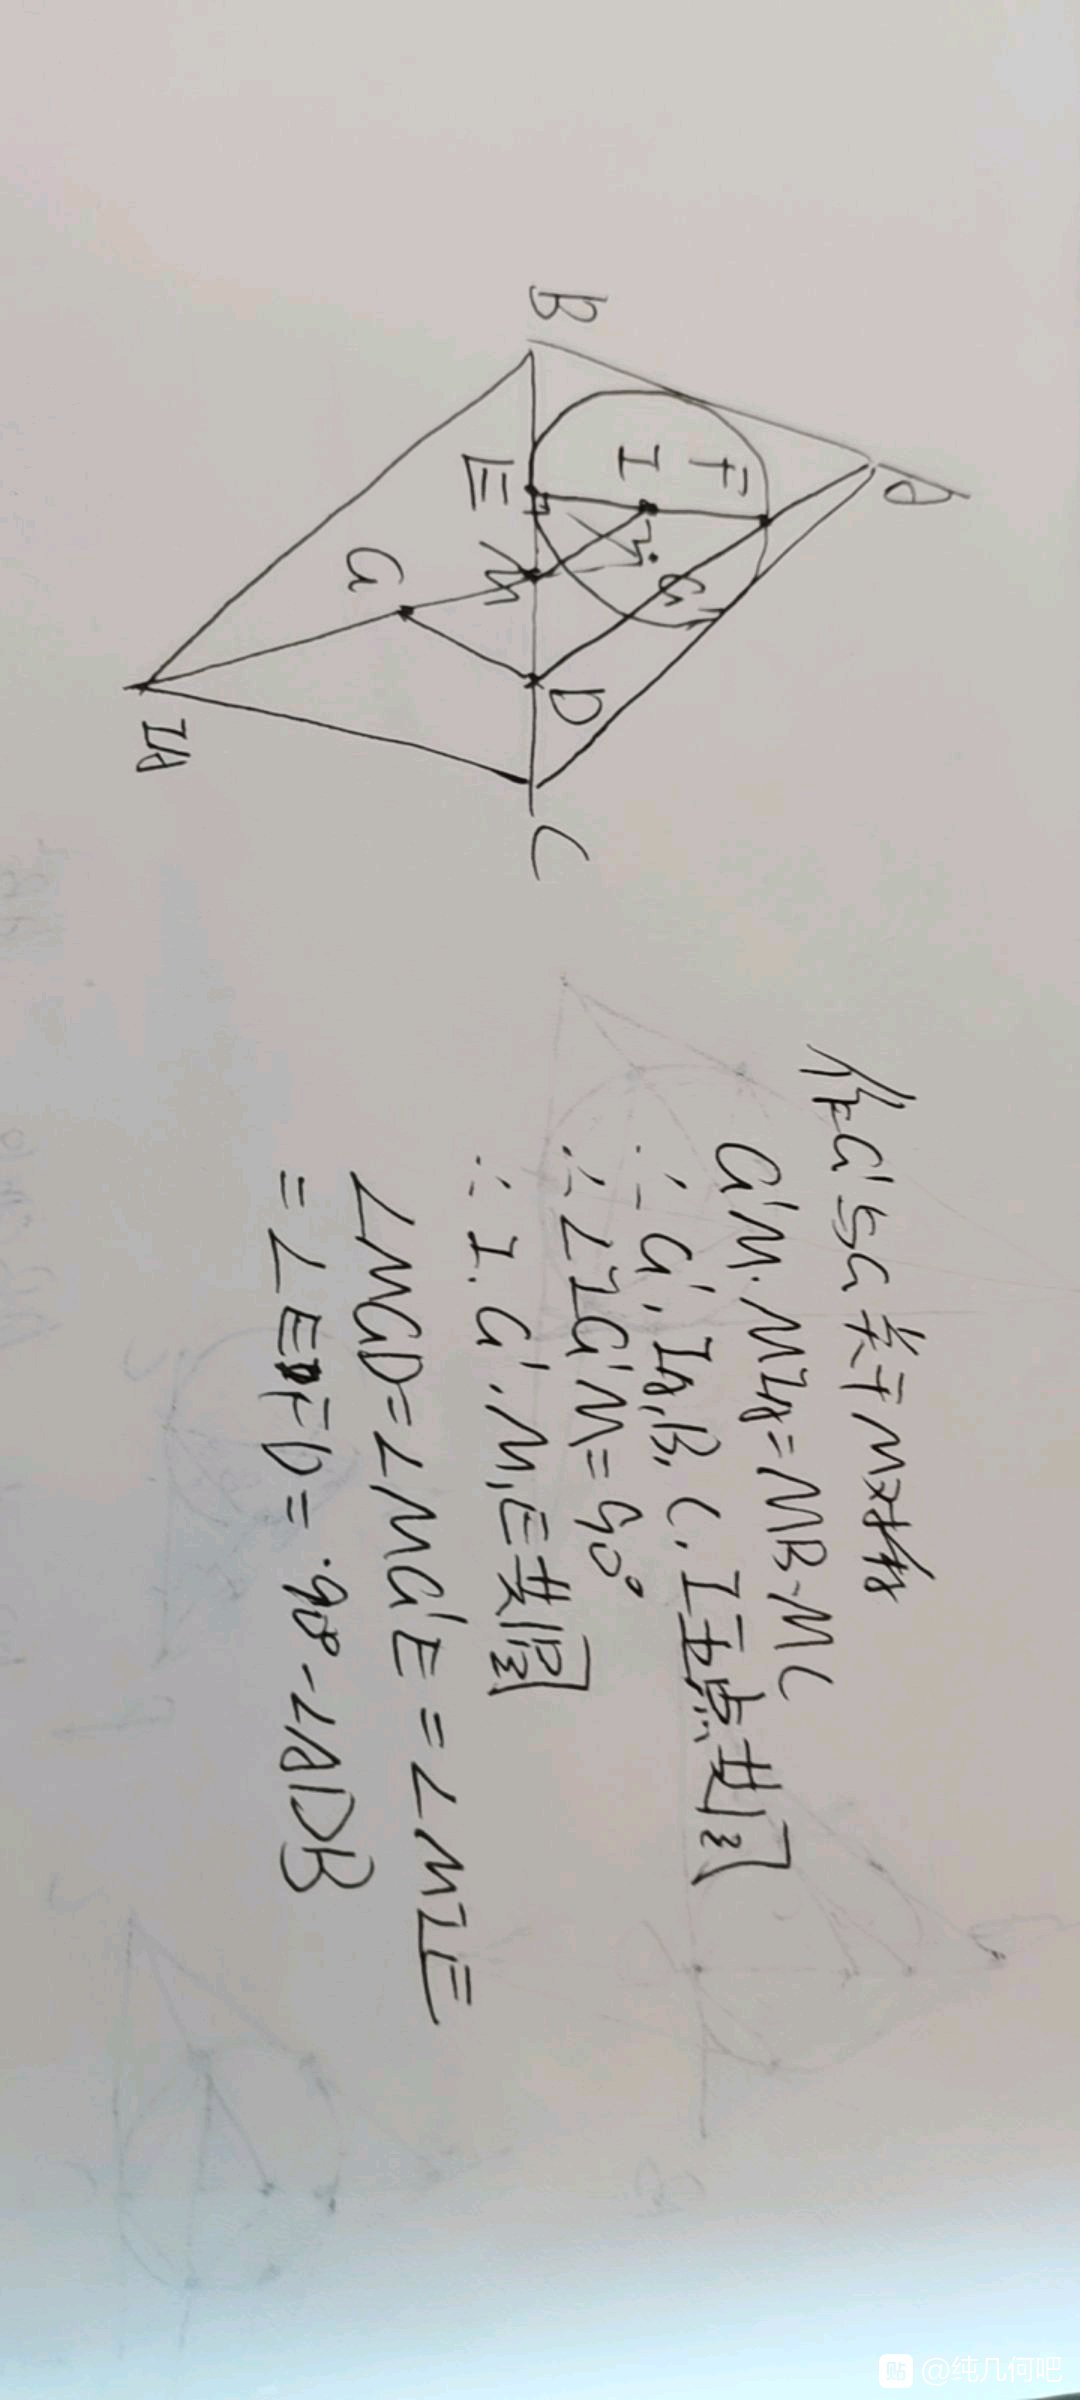 A
B
F
I
E
G'
M
D
G
C
IA
作G'与G关于M对称
G'M·MIA=MB·MC
∴G',IA,B,C,I五点共圆
∴∠IG'M=90°
∴I,G',M,E共圆
∠MGD=∠MG'E=∠MIE
=∠EFD=90°-∠ADB
贴 @纯几何吧